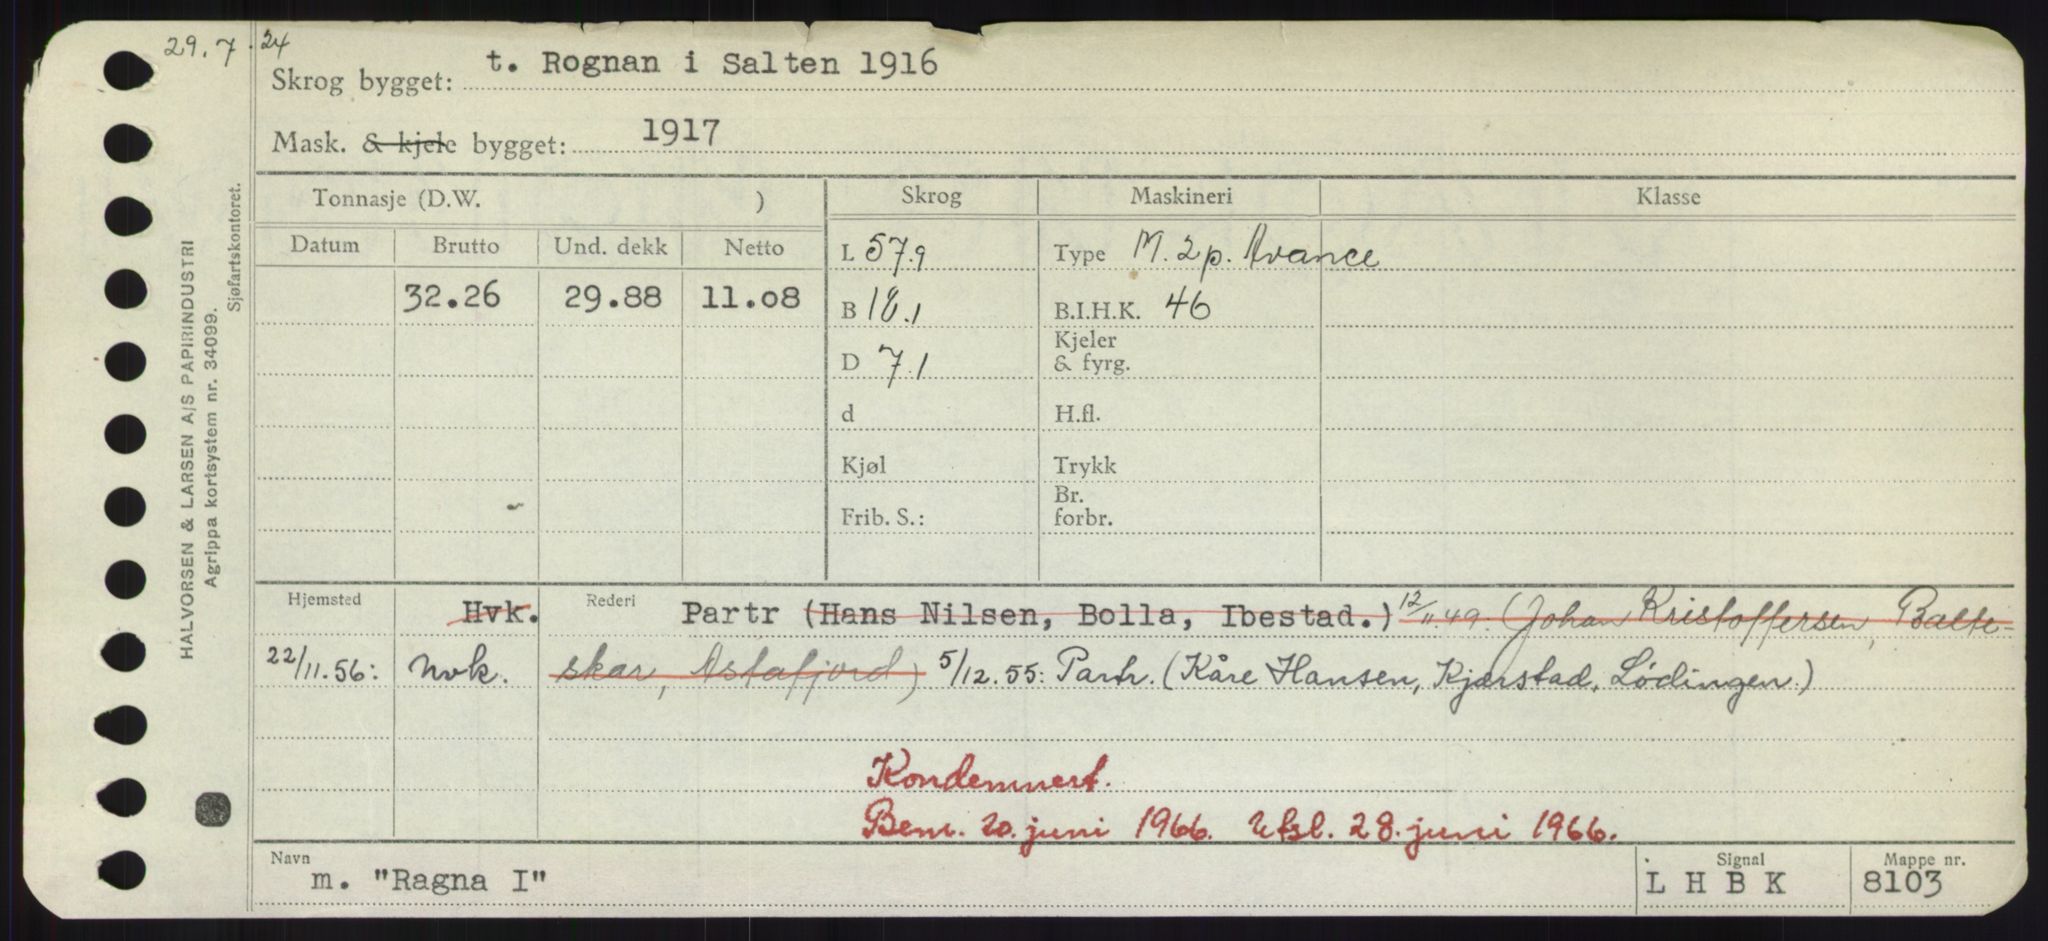 29.7.24
Skrog bygget: t. Rognan i Salten 1916
Mask. & kjele bygget: 1917
Tonnasje (D.W. ) Skrog Maskineri Klasse
Datum Brutto Und. dekk Netto L 57.9 Type M. 2p. Avance
32.26 29.88 11.08 B 18.1 B.I.H.K. 46
D 7.1 Kjeler & fyrg.
d H.fl.
Kjøl Trykk
Frib. S.: Br. forbr.
Hjemsted Hvk. Rederi Partr (Hans Nilsen, Bolla, Ibestad.) 12/11.49. (Johan Kristoffersen, Balte-
22/11.56: Nvk. skar, Astafjord) 5/12.55: Partr. (Kåre Hansen, Kjærstad, Lødingen.)
Kondemnert.
Bem. 20. juni 1966. Utsl. 28. juni 1966.
Navn Signal Mappe nr.
m. "Ragna I" L H B K 8103
HALVORSEN & LARSEN A/S PAPIRINDUSTRI
Agrippa kortsystem nr. 34099.
Sjøfartskontoret.